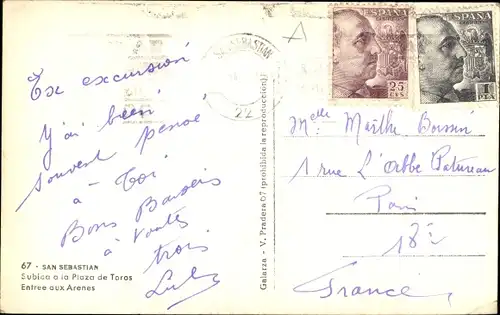 ESPAÑA
25
CTS
ESPAÑA
1
PTA
SAN SEBASTIAN
22
A
En excursion
j'ai bien
souvent pensé
à Toi
Bons Baisers
à Toutes
trois
Melle Marthe
1 rue L'Abbé Patureau
Paris
18e
France
67 - SAN SEBASTIAN
Subida a la Plaza de Toros
Entree aux Arenes
Galarza - V. Pradera 67 (prohibida la reproducción)